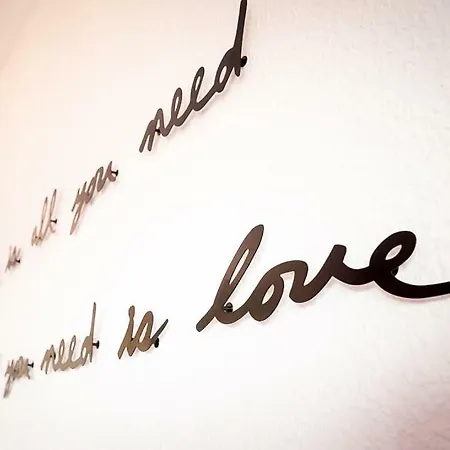 is all you need
you need is love